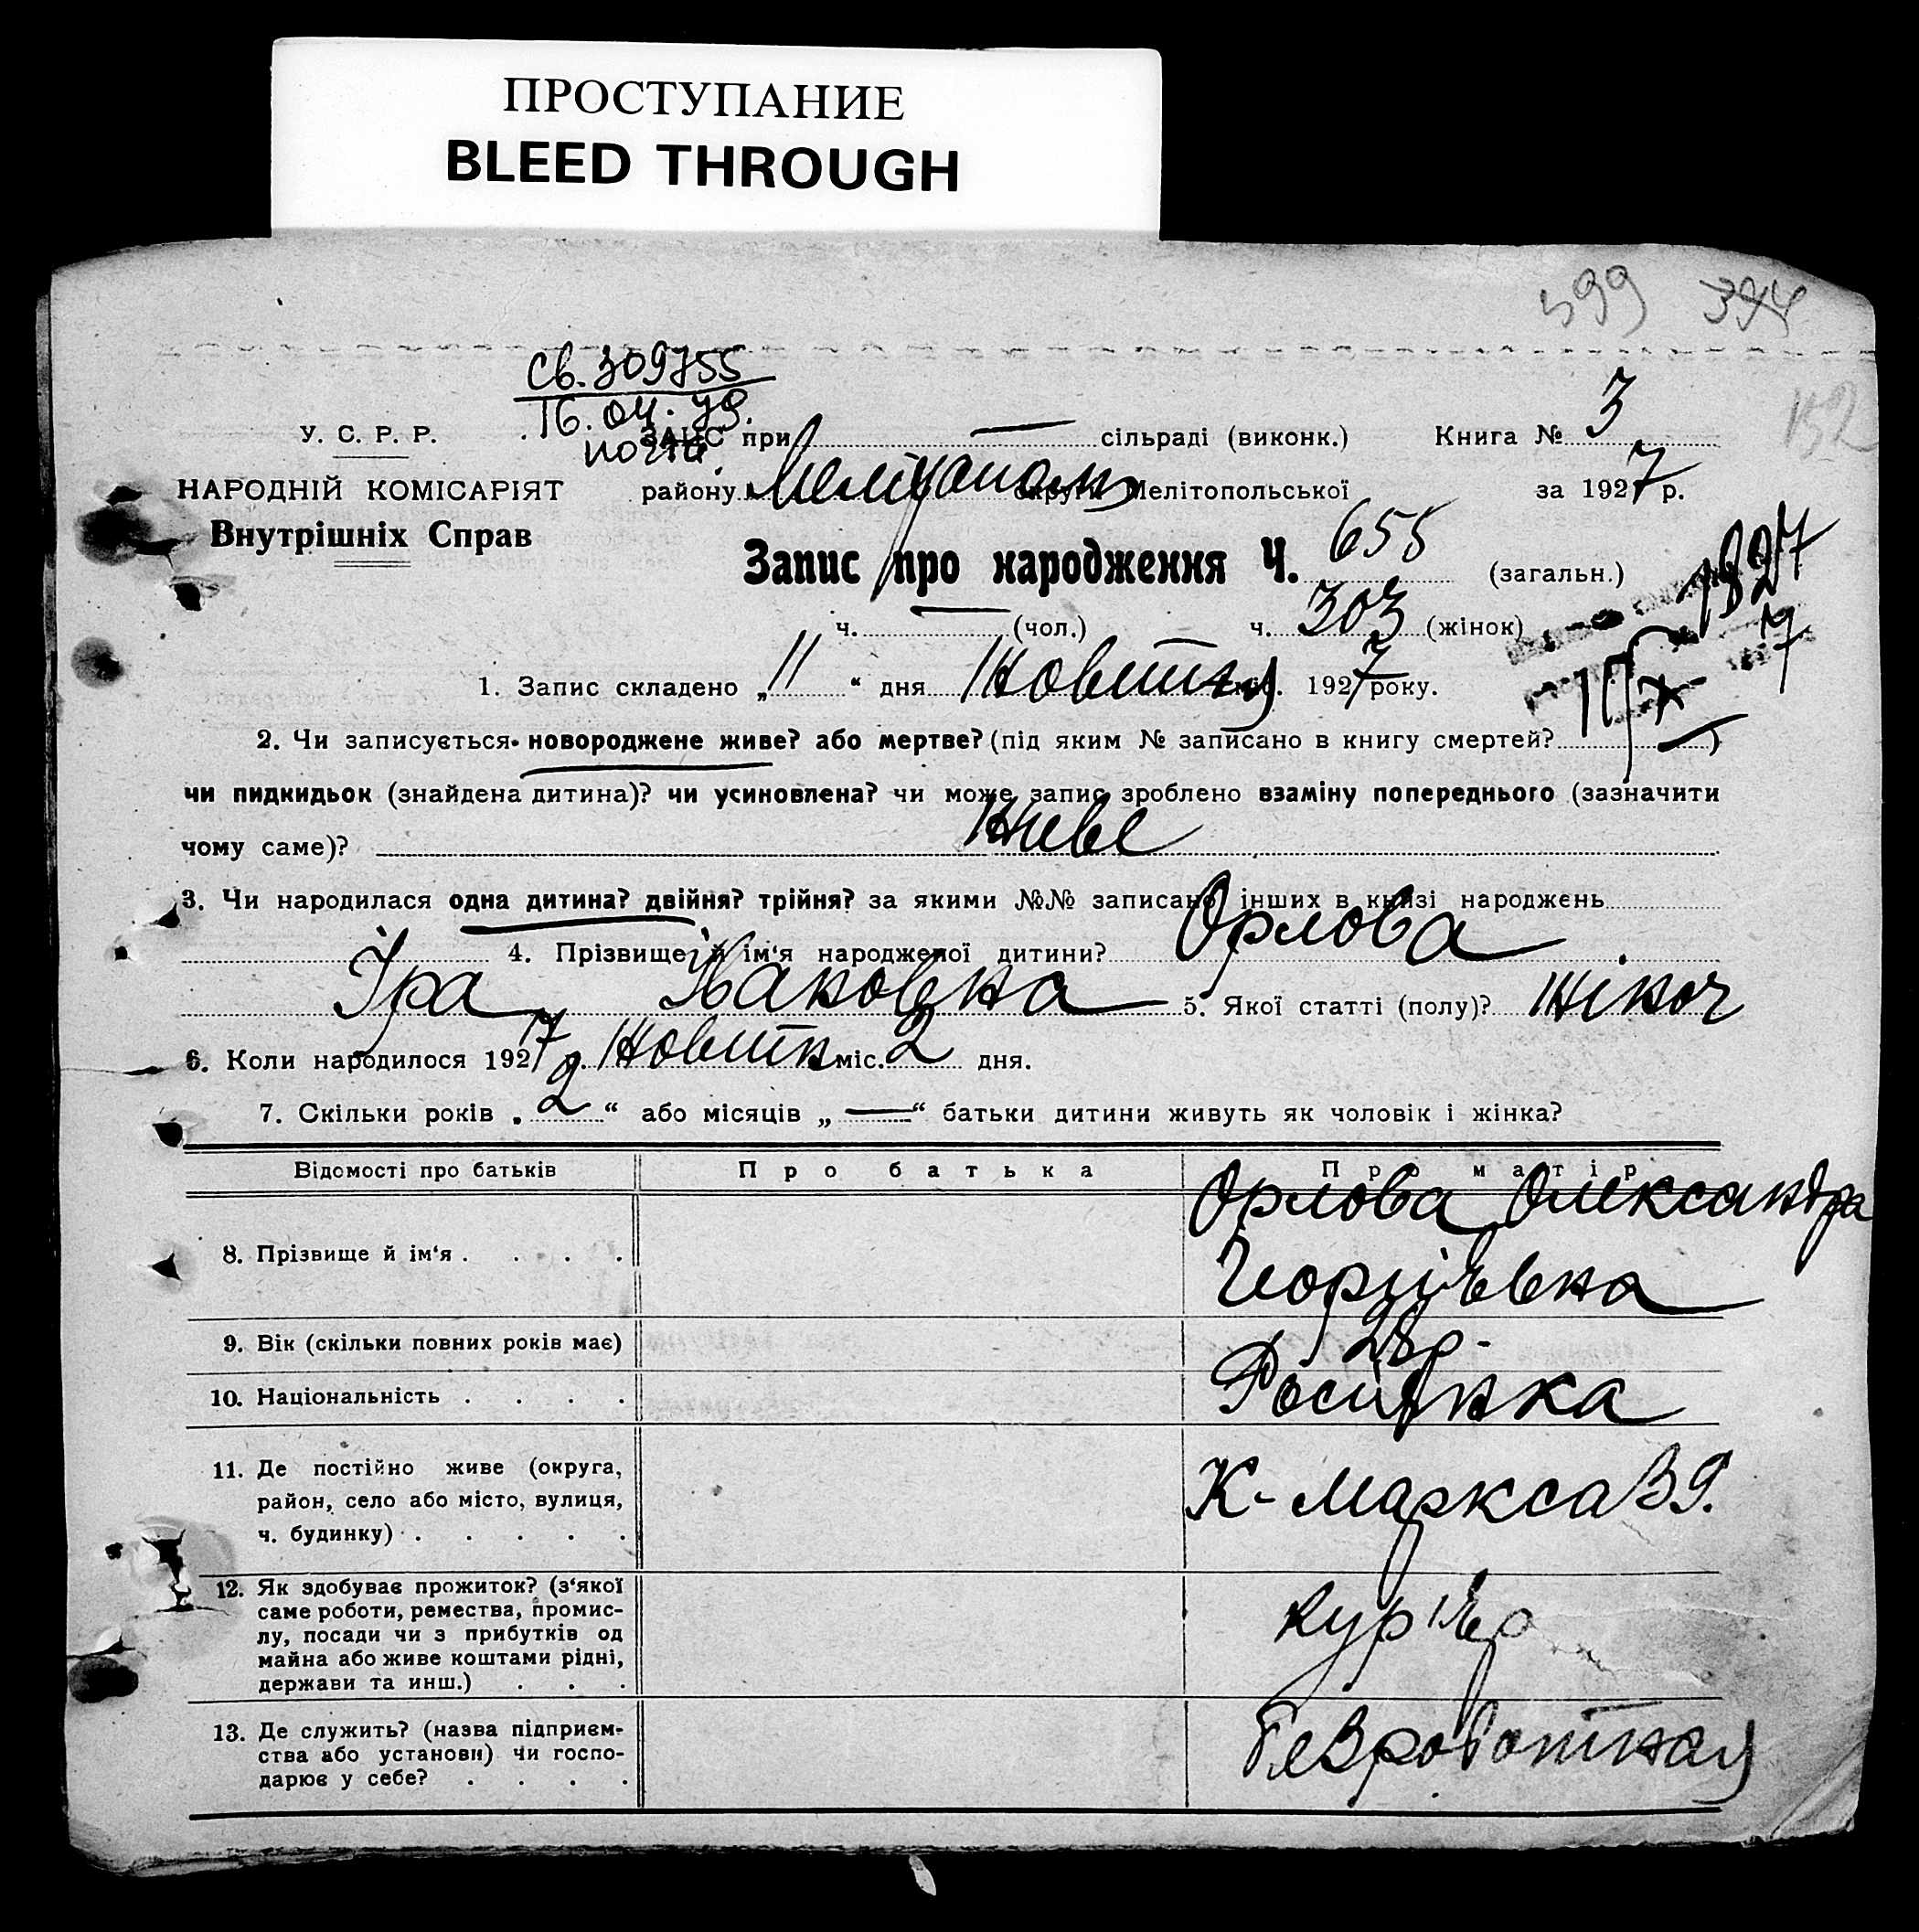 ПРОСТУПАНИЕ
BLEED THROUGH
599 394
152
Св. 309755
16.04.79.
почта.
У. С. Р. Р.
ЗАПС при — сільраді (виконк.) Книга № 3
НАРОДНІЙ КОМІСАРІЯТ
району округи Мелітопольської за 1927 р.
Внутрішніх Справ
Запис про народження Ч. 655 (загальн.)
ч. — (чол.) ч. 303 (жінок)
1. Запис складено „11“ дня Жовтня міс. 1927 року.
2. Чи записується новороджене живе? або мертве? (під яким № записано в книгу смертей? — )
чи пидкидьок (знайдена дитина)? чи усиновлена? чи може запис зроблено взаміну попереднього (зазначити
чому саме)? Живе
3. Чи народилася одна дитина? двійня? трійня? за якими №№ записано інших в книзі народжень
4. Прізвище й ім‘я народженої дитини? Орлова
Іра 5. Якої статті (полу)? жіноч
6. Коли народилося 1927 р. Жовтн міс. 2 дня.
7. Скільки років „2“ або місяців „—“ батьки дитини живуть як чоловік і жінка?
Відомості про батьків Про батька Про матір
8. Прізвище й ім‘я . . . . Орлова Олександра
Георгіївна
9. Вік (скільки повних років має) 28 р.
10. Національність . . . . Росіянка
11. Де постійно живе (округа,
район, село або місто, вулиця,
ч. будинку) . . . . . К-Маркса 39.
12. Як здобуває прожиток? (з‘якої
саме роботи, ремества, промис-
лу, посади чи з прибутків од
майна або живе коштами рідні,
держави та инш.) . . . кур'єр
13. Де служить? (назва підприєм-
ства або установи) чи госпо-
дарює у себе? . . . . Безработная